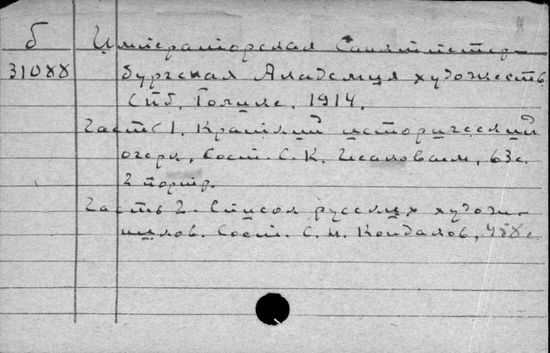 б Императорская Санктпетер-
31088 бургская Академия художеств.
Спб, Голике, 1914.
Часть 1. Краткий исторический
очерк, Сост. С. К. Исаковым, 63 с.
2 портр.
Часть 2. Список русских худож-
ников. Сост. С. Н. Кондаков, 458 с.